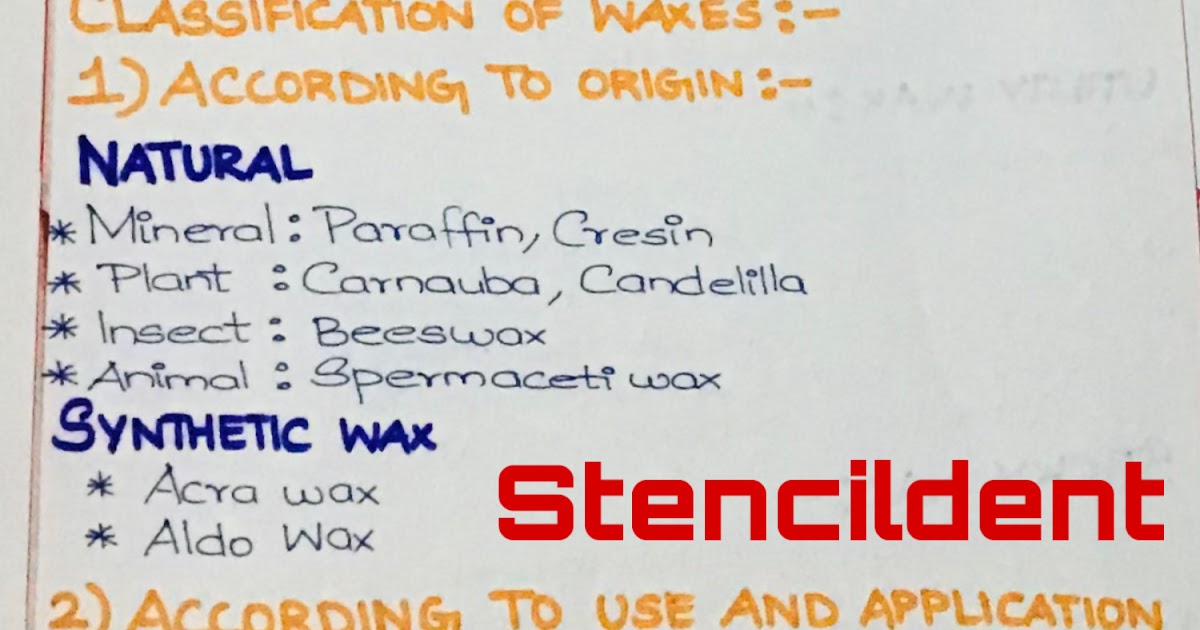 CLASSIFICATION OF WAXES:-
1) ACCORDING TO ORIGIN:-
NATURAL
* Mineral: Paraffin, Cresin
* Plant : Carnauba, Candelilla
* Insect : Beeswax
* Animal : Spermaceti wax
SYNTHETIC WAX
* Acra wax
* Aldo Wax
Stencildent
2) ACCORDING TO USE AND APPLICATION